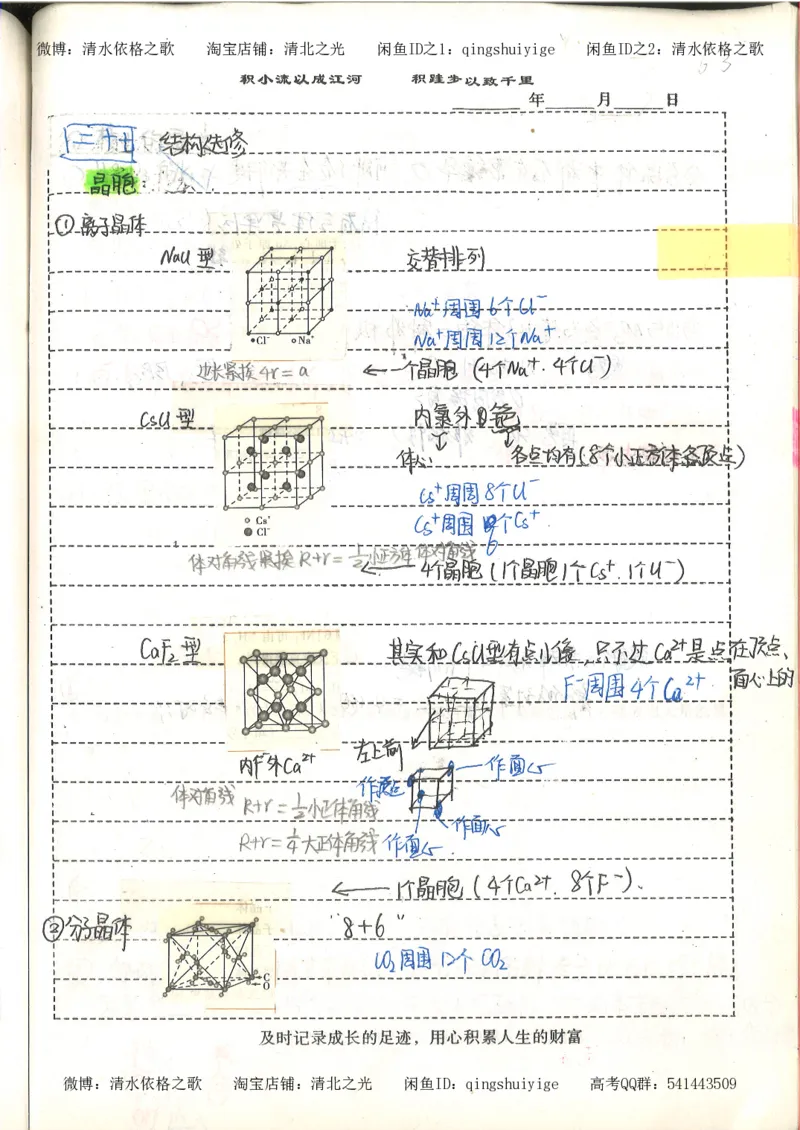 微博：清水依格之歌 淘宝店铺：清北之光 闲鱼ID之1：qingshuiyige 闲鱼ID之2：清水依格之歌
积小流以成江河 积跬步以致千里
年 月 日
二十七 结构选修
晶胞：
①离子晶体
NaCl型 交替排列
Na⁺周围6个Cl⁻
Cl⁻ Na⁺ Na⁺周围12个Na⁺
边长累挨 4r=a ← 一个晶胞（4个Na⁺、4个Cl⁻）
CsCl型 内氯外铯
体心 各点均有（8个小正方体各顶点）
Cs⁺周围8个Cl⁻
Cs⁺ Cs⁺周围6个Cs⁺
Cl⁻
体对角线累挨 R+r=½小正方体体对角线
← 4个晶胞（1个晶胞1个Cs⁺、1个Cl⁻）
CaF₂型 其实和CsCl型有点小像，只不过Ca²⁺是点在顶点、面心上的
F⁻周围4个Ca²⁺
左上前
内F⁻外Ca²⁺ 作面心
体对角线 作顶点
R+r=½小正体角线 作面心
R+r=¼大正体角线 作面心
← 1个晶胞（4个Ca²⁺、8个F⁻）、
②分子晶体 "8+6"
CO₂周围12个CO₂
C
O
及时记录成长的足迹，用心积累人生的财富
微博：清水依格之歌 淘宝店铺：清北之光 闲鱼ID：qingshuiyige 高考QQ群：541443509